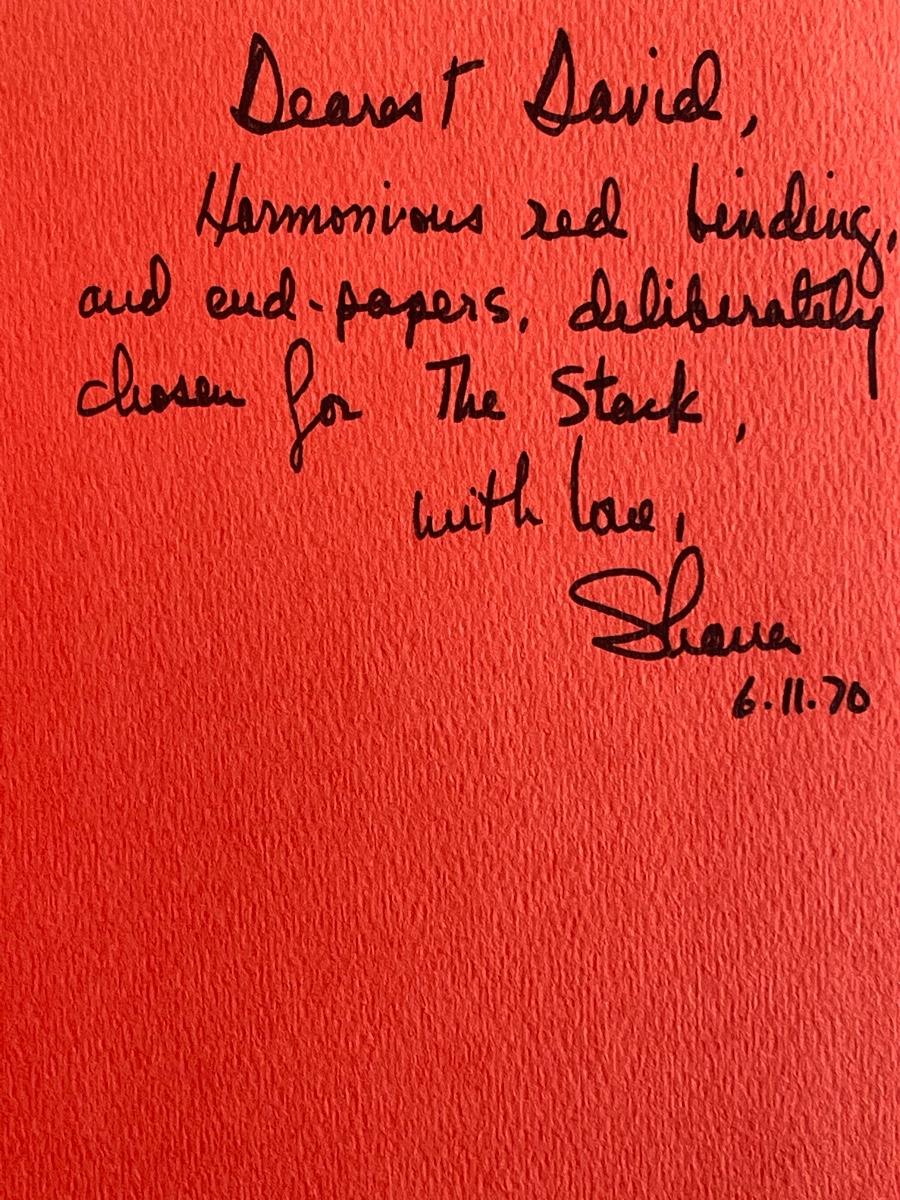 Dearest David,
Harmonious red binding,
and end-papers, deliberately
chosen for The Stack,
with love,
Shana
6.11.70